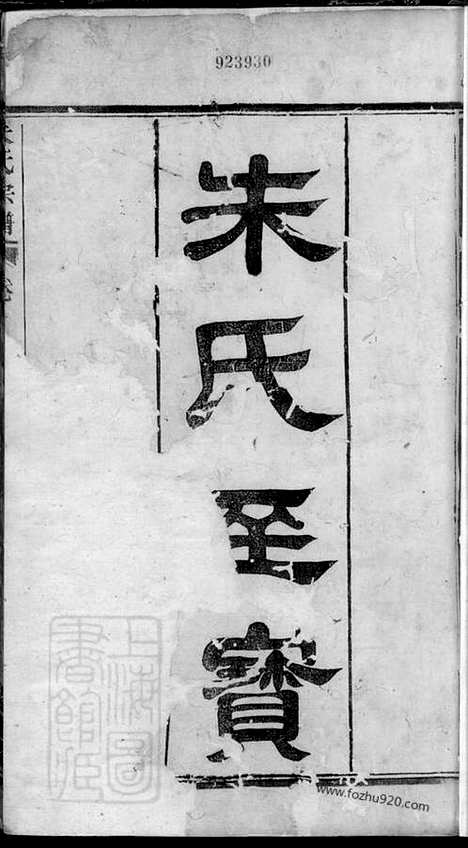 923930
朱氏至寶
上海圖
書館藏
www.fozhu920.com